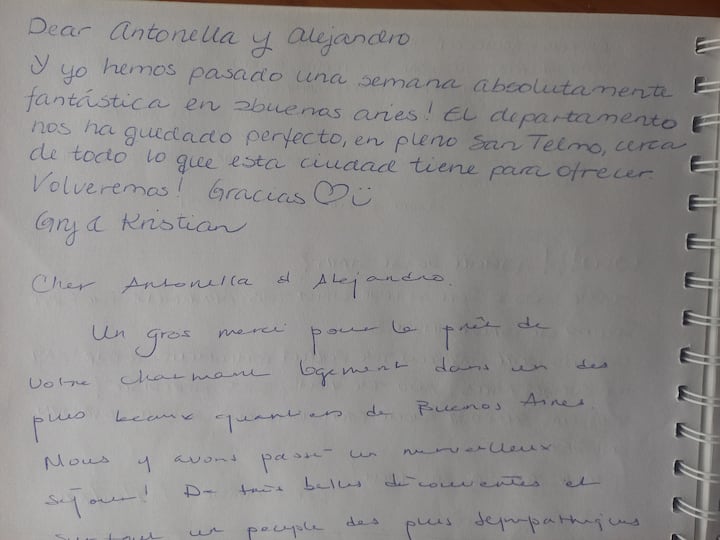 Dear Antonella y Alejandro
Y yo hemos pasado una semana absolutamente
fantástica en buenas aries! El departamento
nos ha quedado perfecto, en pleno San Telmo, cerca
de todo lo que esta ciudad tiene para ofrecer.
Volveremos! Gracias ♡ ü
Gry & Kristian
Cher Antonella et Alejandro.
Un gros merci pour le prêt de
votre charmant logement dans un des
plus beaux quartiers de Buenos Aires.
Nous y avons passé un merveilleux
séjour! De très belles découvertes et
surtout un peuple des plus sympathiques